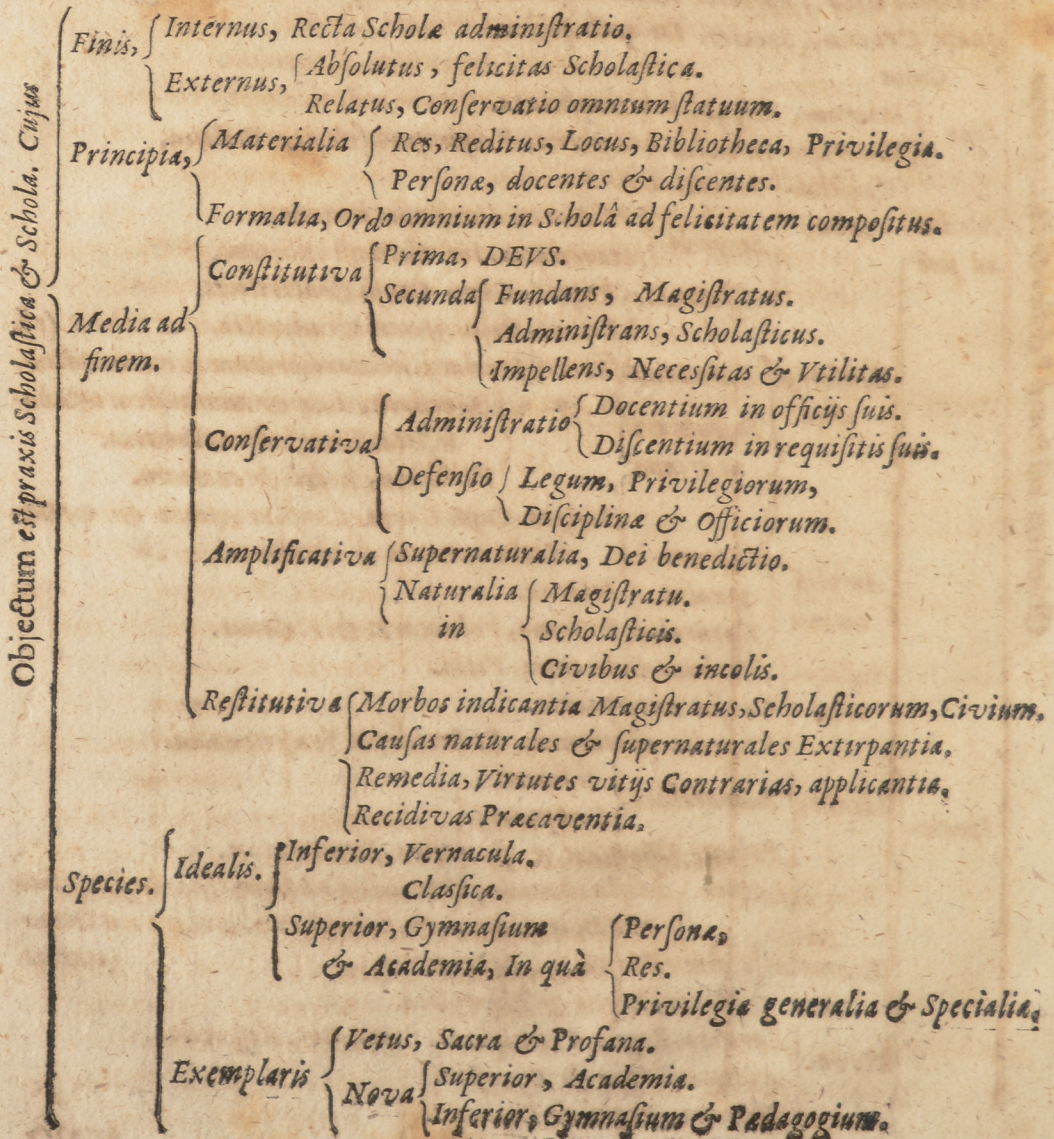 Objectum est praxis Scholastica & Schola. Cujus
Finis, Internus, Recta Scholæ administratio.
Externus, Absolutus, felicitas Scholastica.
Relatus, Conservatio omnium statuum.
Principia, Materialia Res, Reditus, Locus, Bibliotheca, Privilegia.
Personæ, docentes & discentes.
Formalia, Ordo omnium in Scholâ ad felicitatem compositus.
Media ad finem. Constitutiva Prima, DEVS.
Secunda Fundans, Magistratus.
Administrans, Scholasticus.
Impellens, Necessitas & Vtilitas.
Conservativa Administratio Docentium in officijs suis.
Discentium in requisitis suis.
Defensio Legum, Privilegiorum,
Disciplinæ & Officiorum.
Amplificativa Supernaturalia, Dei benedictio.
Naturalia in Magistratu.
Scholasticis.
Civibus & incolis.
Restitutiva Morbos indicantia Magistratus, Scholasticorum, Civium.
Causas naturales & supernaturales Extirpantia.
Remedia, Virtutes vitijs Contrarias, applicantia.
Recidivas Præcaventia.
Species. Idealis. Inferior, Vernacula.
Classica.
Superior, Gymnasium
& Academia, In quà Personæ,
Res.
Privilegia generalia & Specialia.
Exemplaris Vetus, Sacra & Profana.
Nova Superior, Academia.
Inferior, Gymnasium & Pædagogium.